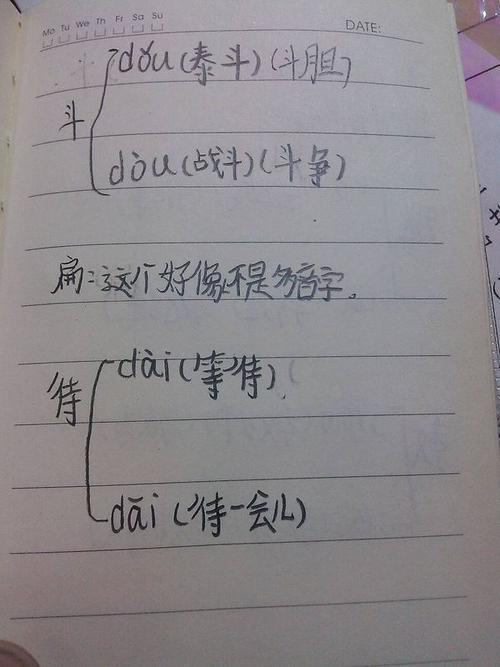 Mo Tu We Th Fr Sa Su
DATE:
dǒu(泰斗)(斗胆)
斗
dòu(战斗)(斗争)
扁:这个好像不是多音字。
dài(等待)
待
dāi(待一会儿)